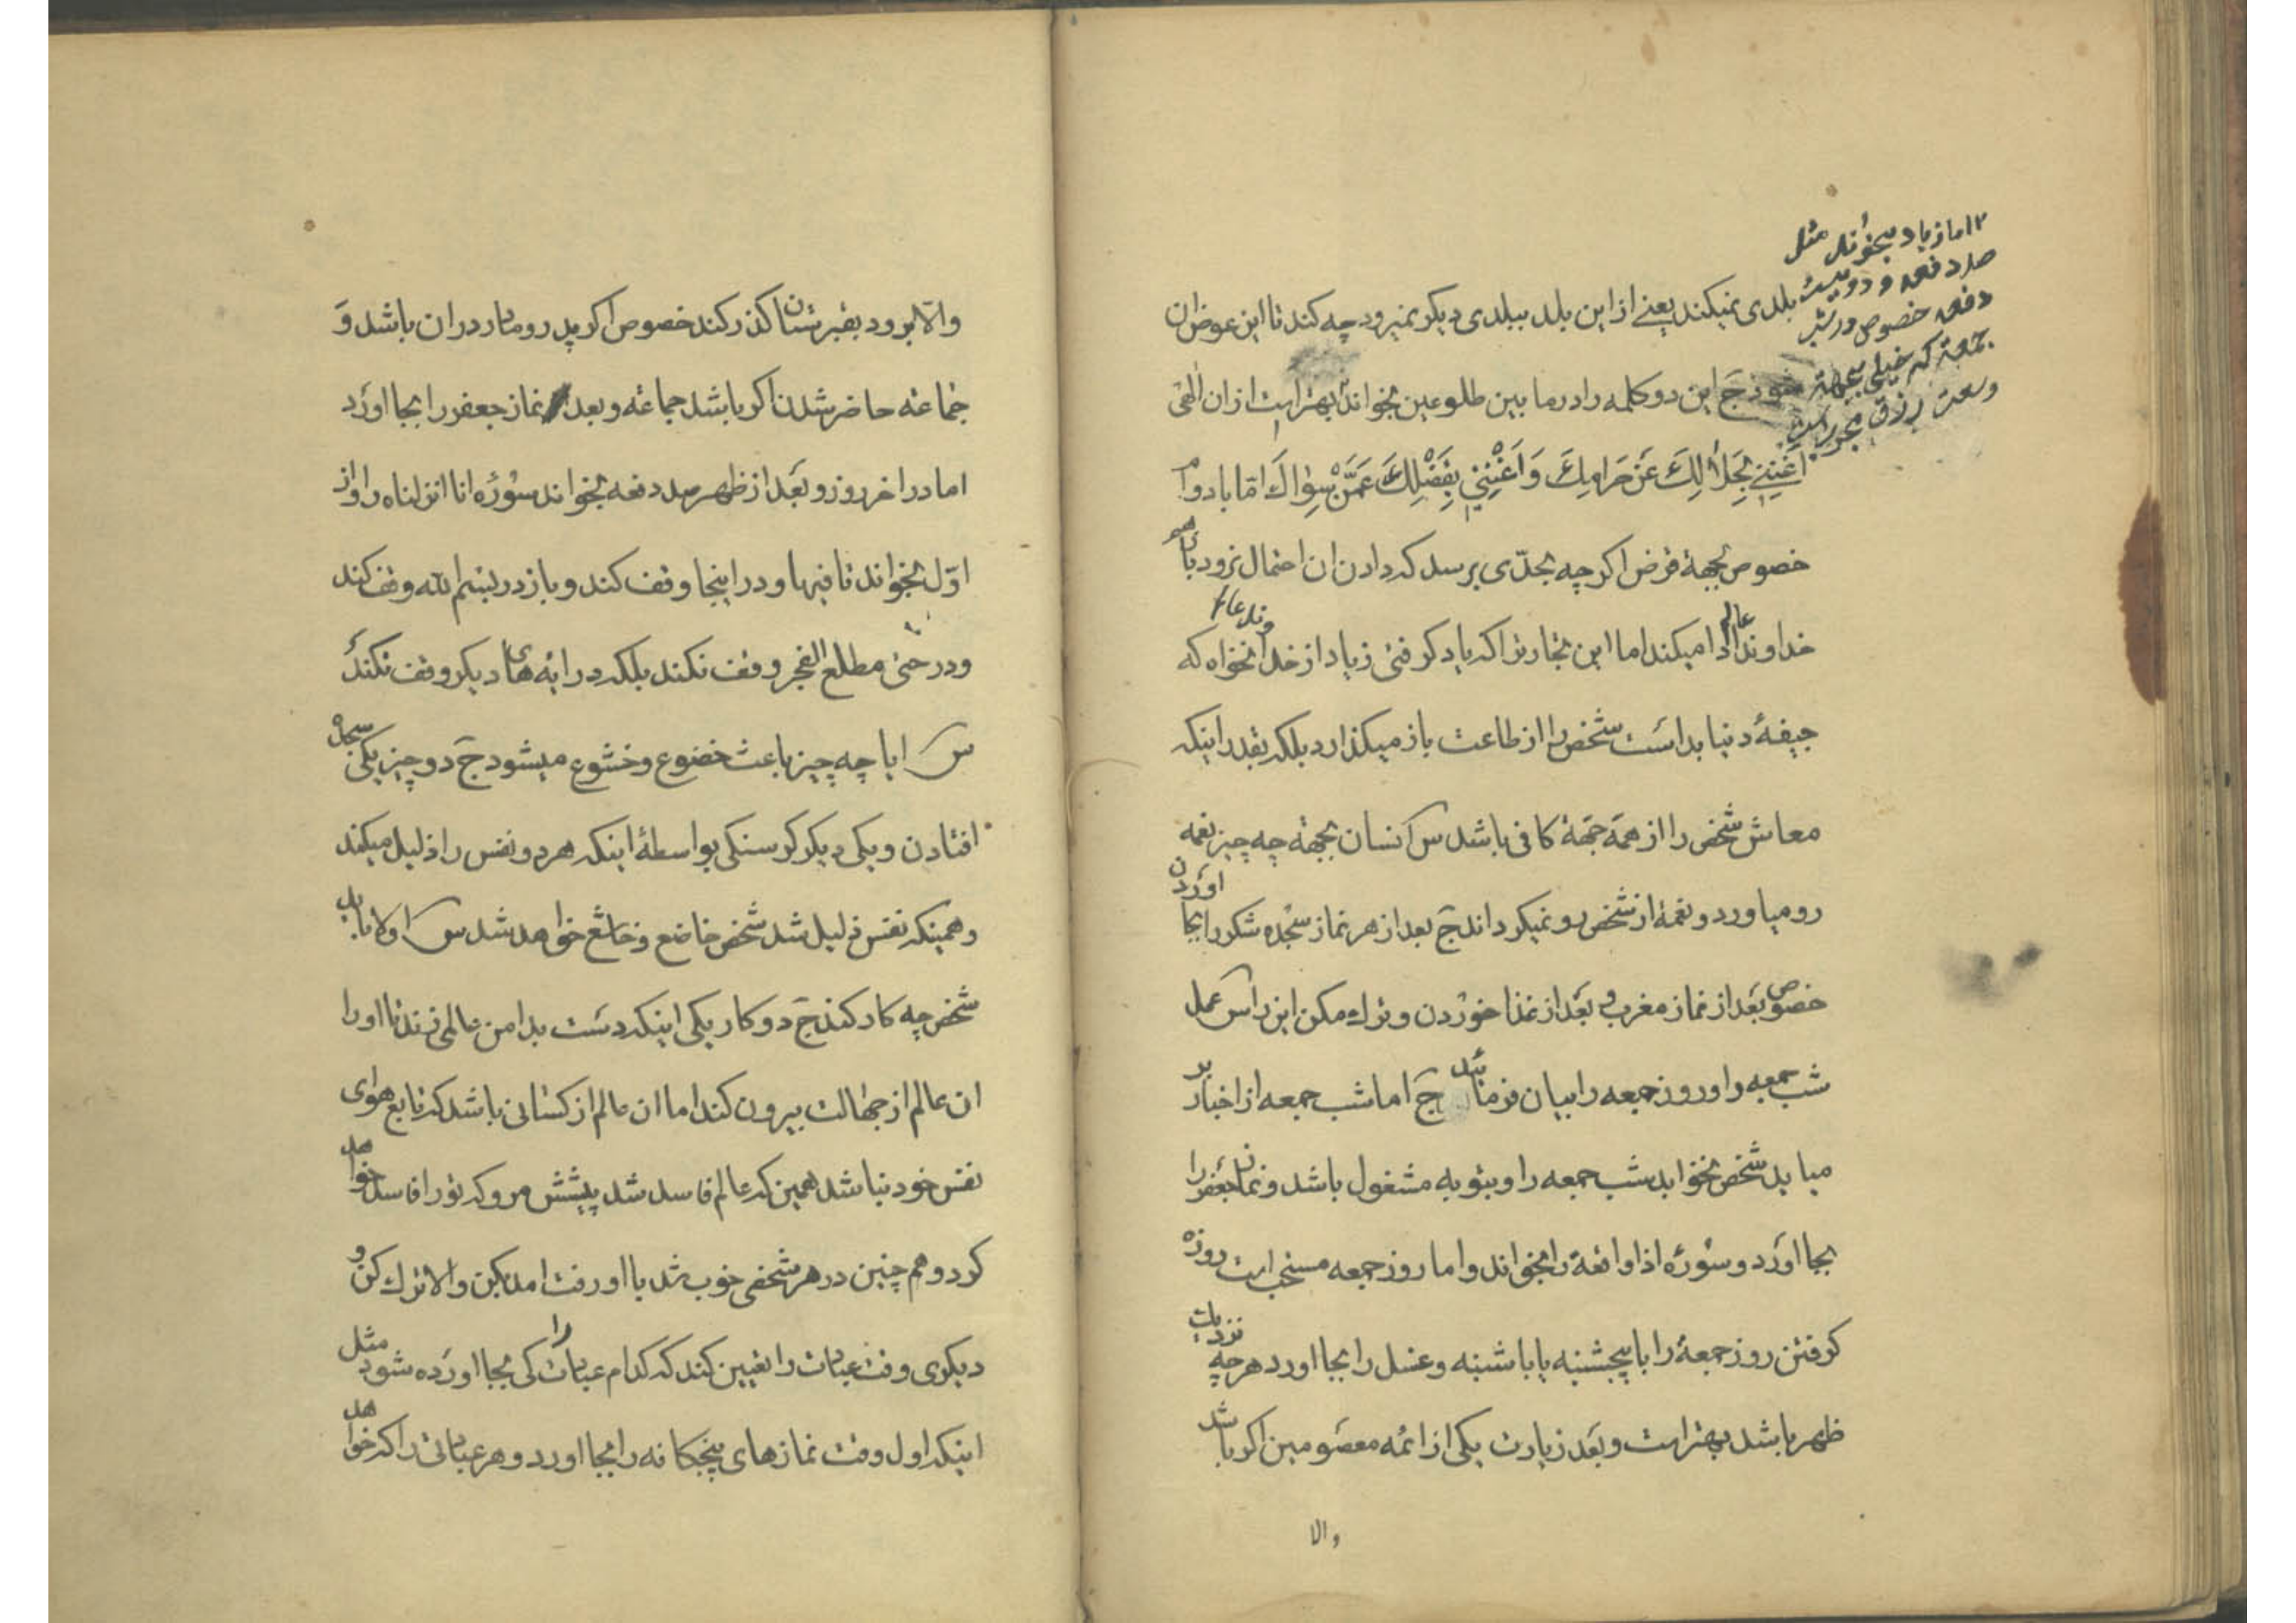 ۲ اما زیاد بخواند مثل
صد دفعه و دویست
دفعه خصوص در شب
جمعه که خیلی بجهة
وسعت رزق مجرب است
بلدی نمیکند یعنی از این بلد ببلدی دیکر نمیرود چه کند تا این عوض ان
شود ج این دو کلمه را در ما بین طلوعین بخواند بهتر است از ان الهی
اغننی بحلالك عن حرامك و اغننی بفضلك عمن سواك اما باد وام
خصوص بجهة قرض اکر چه بحدّی برسد که دادن ان احتمال نرود باهم
خداوند عالم ادا میکند اما این تجار تراکه یاد کرفتی زیاد از خداوند عالم نخواه که
جیفهٔ دنیا بد است شخص را از طاعت باز میکذارد بلکه بقدر اینکه
معاش شخص را از همه جهة کافی باشد س انسان بجهة چه چیز نعمه
رو میاورد و نعمة از شخص رو نمیکرداند ج بعد از هر نماز سجده شکر را بجا اوردن
خصوص بعد از نماز مغرب و بعد از غذا خوردن و ترك مکن این را س عمل
شب جمعه را و روز جمعه را بیان فرمائید ج اما شب جمعه از اخبار بر
میاید شخص نخوابد شب جمعه را و بتوبه مشغول باشد و نماز جعفر را
بجا اورد و سورهٔ اذا واقعة را بخواند و اما روز جمعه مستحب است روزه
کرفتن روز جمعهٔ را با پنجشنبه یا با شنبه و غسل را بجا اورد هر چه نزدیك
ظهر باشد بهتر است و بعد زیارت یکی از ائمه معصومین اکر باشد
والا
والا برود بقبرستان کذر کند خصوص اکر پدر و مادر در ان باشد و
جماعة حاضر شدن اکر باشد جماعة و بعد نماز جعفر را بجا اورد
اما در اخر روز و بعد از ظهر صد دفعه بخواند سورهٔ انا انزلناه را و از
اول بخواند تا فیها و در اینجا وقف کند و باز در بسم الله وقف کند
و در حتی مطلع الفجر وقف نکند بلکه در ایه های دیکر وقف نکند
س ایا چه چیز باعث خضوع و خشوع میشود ج دو چیز یکی سجده
افتادن و یکی دیکر کرسنکی بواسطهٔ اینکه هر دو نفس را ذلیل میکند
و همینکه نفس ذلیل شد شخص خاضع و خاشع خواهد شد س اولا باید
شخص چه کار کند ج دو کار یکی اینکه دست بدامن عالمی زند تا او را
ان عالم از جهالت بیرون کند اما ان عالم از کسانی باشد که تابع هوای
نفس خود نباشد همین که عالم فاسد شد پیشش مرو که تو را فاسد خواهد
کرد و هم چنین در هر شخصی خوب شد با او رفت امد بکن والا ترك کن و
دیکری وقت عبادت را تعیین کند که کدام عبادت را کی بجا اورده شود مثل
اینکه اول وقت نمازهای پنجکانه را بجا اورد و هر عبادتی را که خواهد